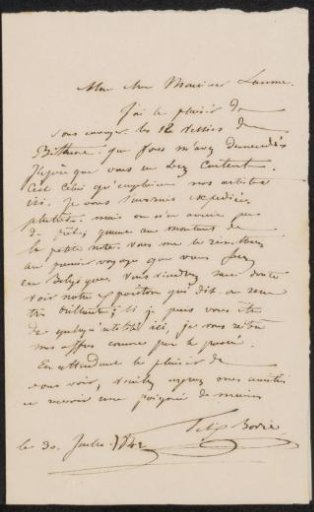 Mon cher Monsieur
J'ai le plaisir de
vous envoyer les 12 dessins de
que vous m'avez demandés
J'espère que vous en serez content.
C'est celui qu'emploient nos artistes
ici. Je vous l'aurais expédié
plutôt, mais on n'en avait pas
de prêts, quant au montant de
la petite note vous me le remettrez
au premier voyage que vous ferez
en Belgique. Vous viendrez sans doute
voir notre exposition qui doit être
très brillante; si je puis vous être
de quelqu'utilité ici, je vous réitère
mes offres comme par le passé.
En attendant le plaisir de
vous voir, veuillez agréer mes amitiés
et recevoir une poignée de mains
Félix Bovie
le 30 Juillet 1842